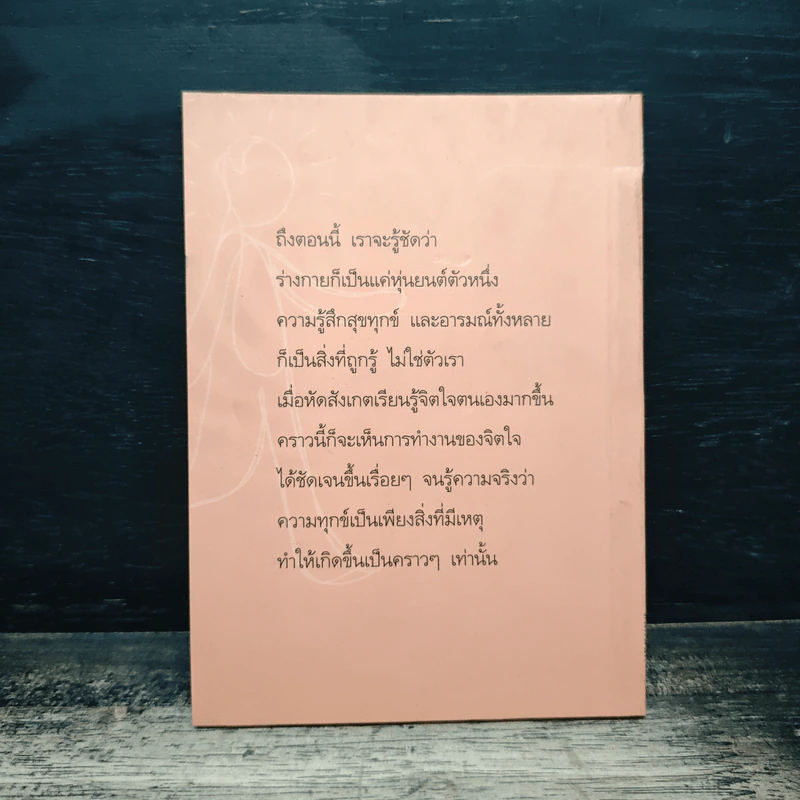 ถึงตอนนี้ เราจะรู้ชัดว่า
ร่างกายก็เป็นแค่หุ่นยนต์ตัวหนึ่ง
ความรู้สึกสุขทุกข์ และอารมณ์ทั้งหลาย
ก็เป็นสิ่งที่ถูกรู้ ไม่ใช่ตัวเรา
เมื่อหัดสังเกตเรียนรู้จิตใจตนเองมากขึ้น
คราวนี้ก็จะเห็นการทำงานของจิตใจ
ได้ชัดเจนขึ้นเรื่อยๆ จนรู้ความจริงว่า
ความทุกข์เป็นเพียงสิ่งที่มีเหตุ
ทำให้เกิดขึ้นเป็นคราวๆ เท่านั้น